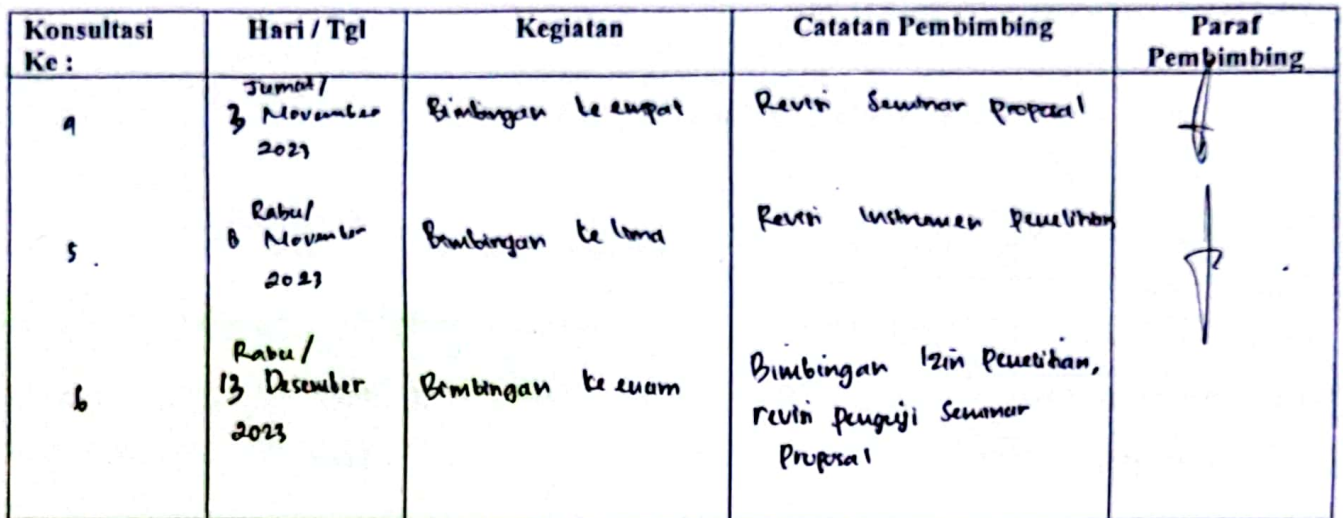 Konsultasi Ke : Hari / Tgl Kegiatan Catatan Pembimbing Paraf Pembimbing
4 Jumat/ 3 November 2023 Bimbingan ke empat Revisi Seminar proposal
5. Rabu/ 8 November 2023 Bimbingan ke lima Revisi instrumen penelitian
6 Rabu/ 13 Desember 2023 Bimbingan ke enam Bimbingan Izin Penelitian, revisi penguji Seminar Proposal